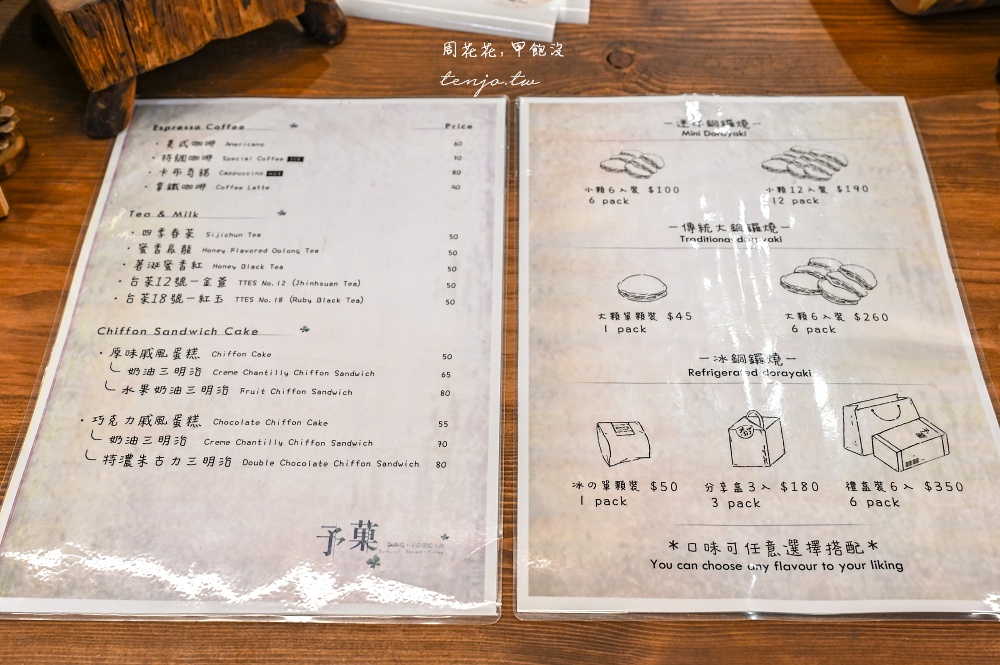 周花花, 甲飽沒
tenjo.tw
Espresso Coffee Price
· 美式咖啡 Americano 60
· 特調咖啡 Special Coffee ICE 90
· 卡布奇諾 Cappuccino HOT 80
· 拿鐵咖啡 Coffee Latte 90
Tea & Milk
· 四季春茶 Sijichun Tea 50
· 蜜香烏龍 Honey Flavored Oolong Tea 50
· 著涎蜜香紅 Honey Black Tea 50
· 台茶12號一金萱 TTES No.12 (Jhinhsuan Tea) 50
· 台茶18號一紅玉 TTES No.18 (Ruby Black Tea) 50
Chiffon Sandwich Cake
· 原味戚風蛋糕 Chiffon Cake 50
奶油三明治 Creme Chantilly Chiffon Sandwich 65
水果奶油三明治 Fruit Chiffon Sandwich 80
· 巧克力戚風蛋糕 Chocolate Chiffon Cake 55
奶油三明治 Creme Chantilly Chiffon Sandwich 70
特濃朱古力三明治 Double Chocolate Chiffon Sandwich 80
予菓
一迷你銅鑼燒一
Mini Dorayaki
小顆6入裝 $100 小顆12入裝 $190
6 pack 12 pack
一傳統大銅鑼燒一
Traditional dorayaki
大顆單顆裝 $45 大顆6入裝 $260
1 pack 6 pack
一冰銅鑼燒一
Refrigerated dorayaki
冰の單顆裝 $50 分享盒3入 $180 禮盒裝6入 $350
1 pack 3 pack 6 pack
*口味可任意選擇搭配*
You can choose any flavour to your liking